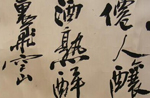 僊人釀
酒熟醉
裏飛雲